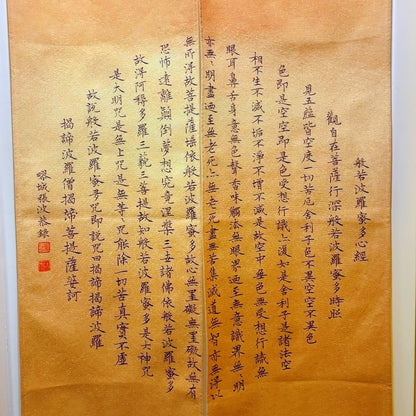 般若波羅蜜多心經
觀自在菩薩行深般若波羅蜜多時照
見五蘊皆空度一切苦厄舍利子色不異空空不異色
色即是空空即是色受想行識亦復如是舍利子是諸法空
相不生不滅不垢不淨不增不減是故空中無色無受想行識無
眼耳鼻舌身意無色聲香味觸法無眼界迺至無意識界無、明
亦無、明盡迺至無老死亦無老死盡無苦集滅道無智亦無得以
無所得故菩提薩埵依般若波羅蜜多故心無罣礙無罣礙故無有
恐怖遠離顛倒夢想究竟涅槃三世諸佛依般若波羅蜜多
故得阿耨多羅三藐三菩提故知般若波羅蜜多是大神咒
是大明咒是無上咒是無等等咒能除一切苦真實不虛
故說般若波羅蜜多咒即說咒曰揭諦揭諦波羅
揭諦波羅僧揭諦菩提薩婆訶
城張波恭錄